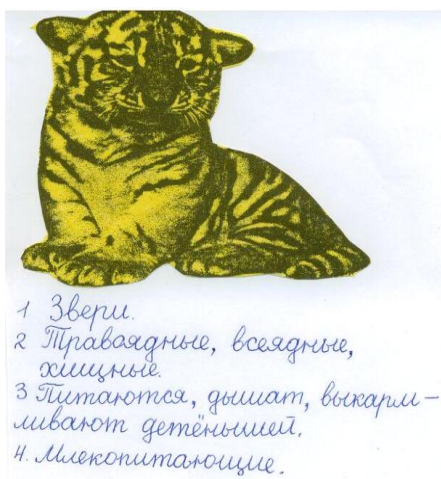 1 Звери.
2 Травоядные, всеядные,
хищные.
3 Питаются, дышат, выкарм-
ливают детёнышей.
4. Млекопитающие.